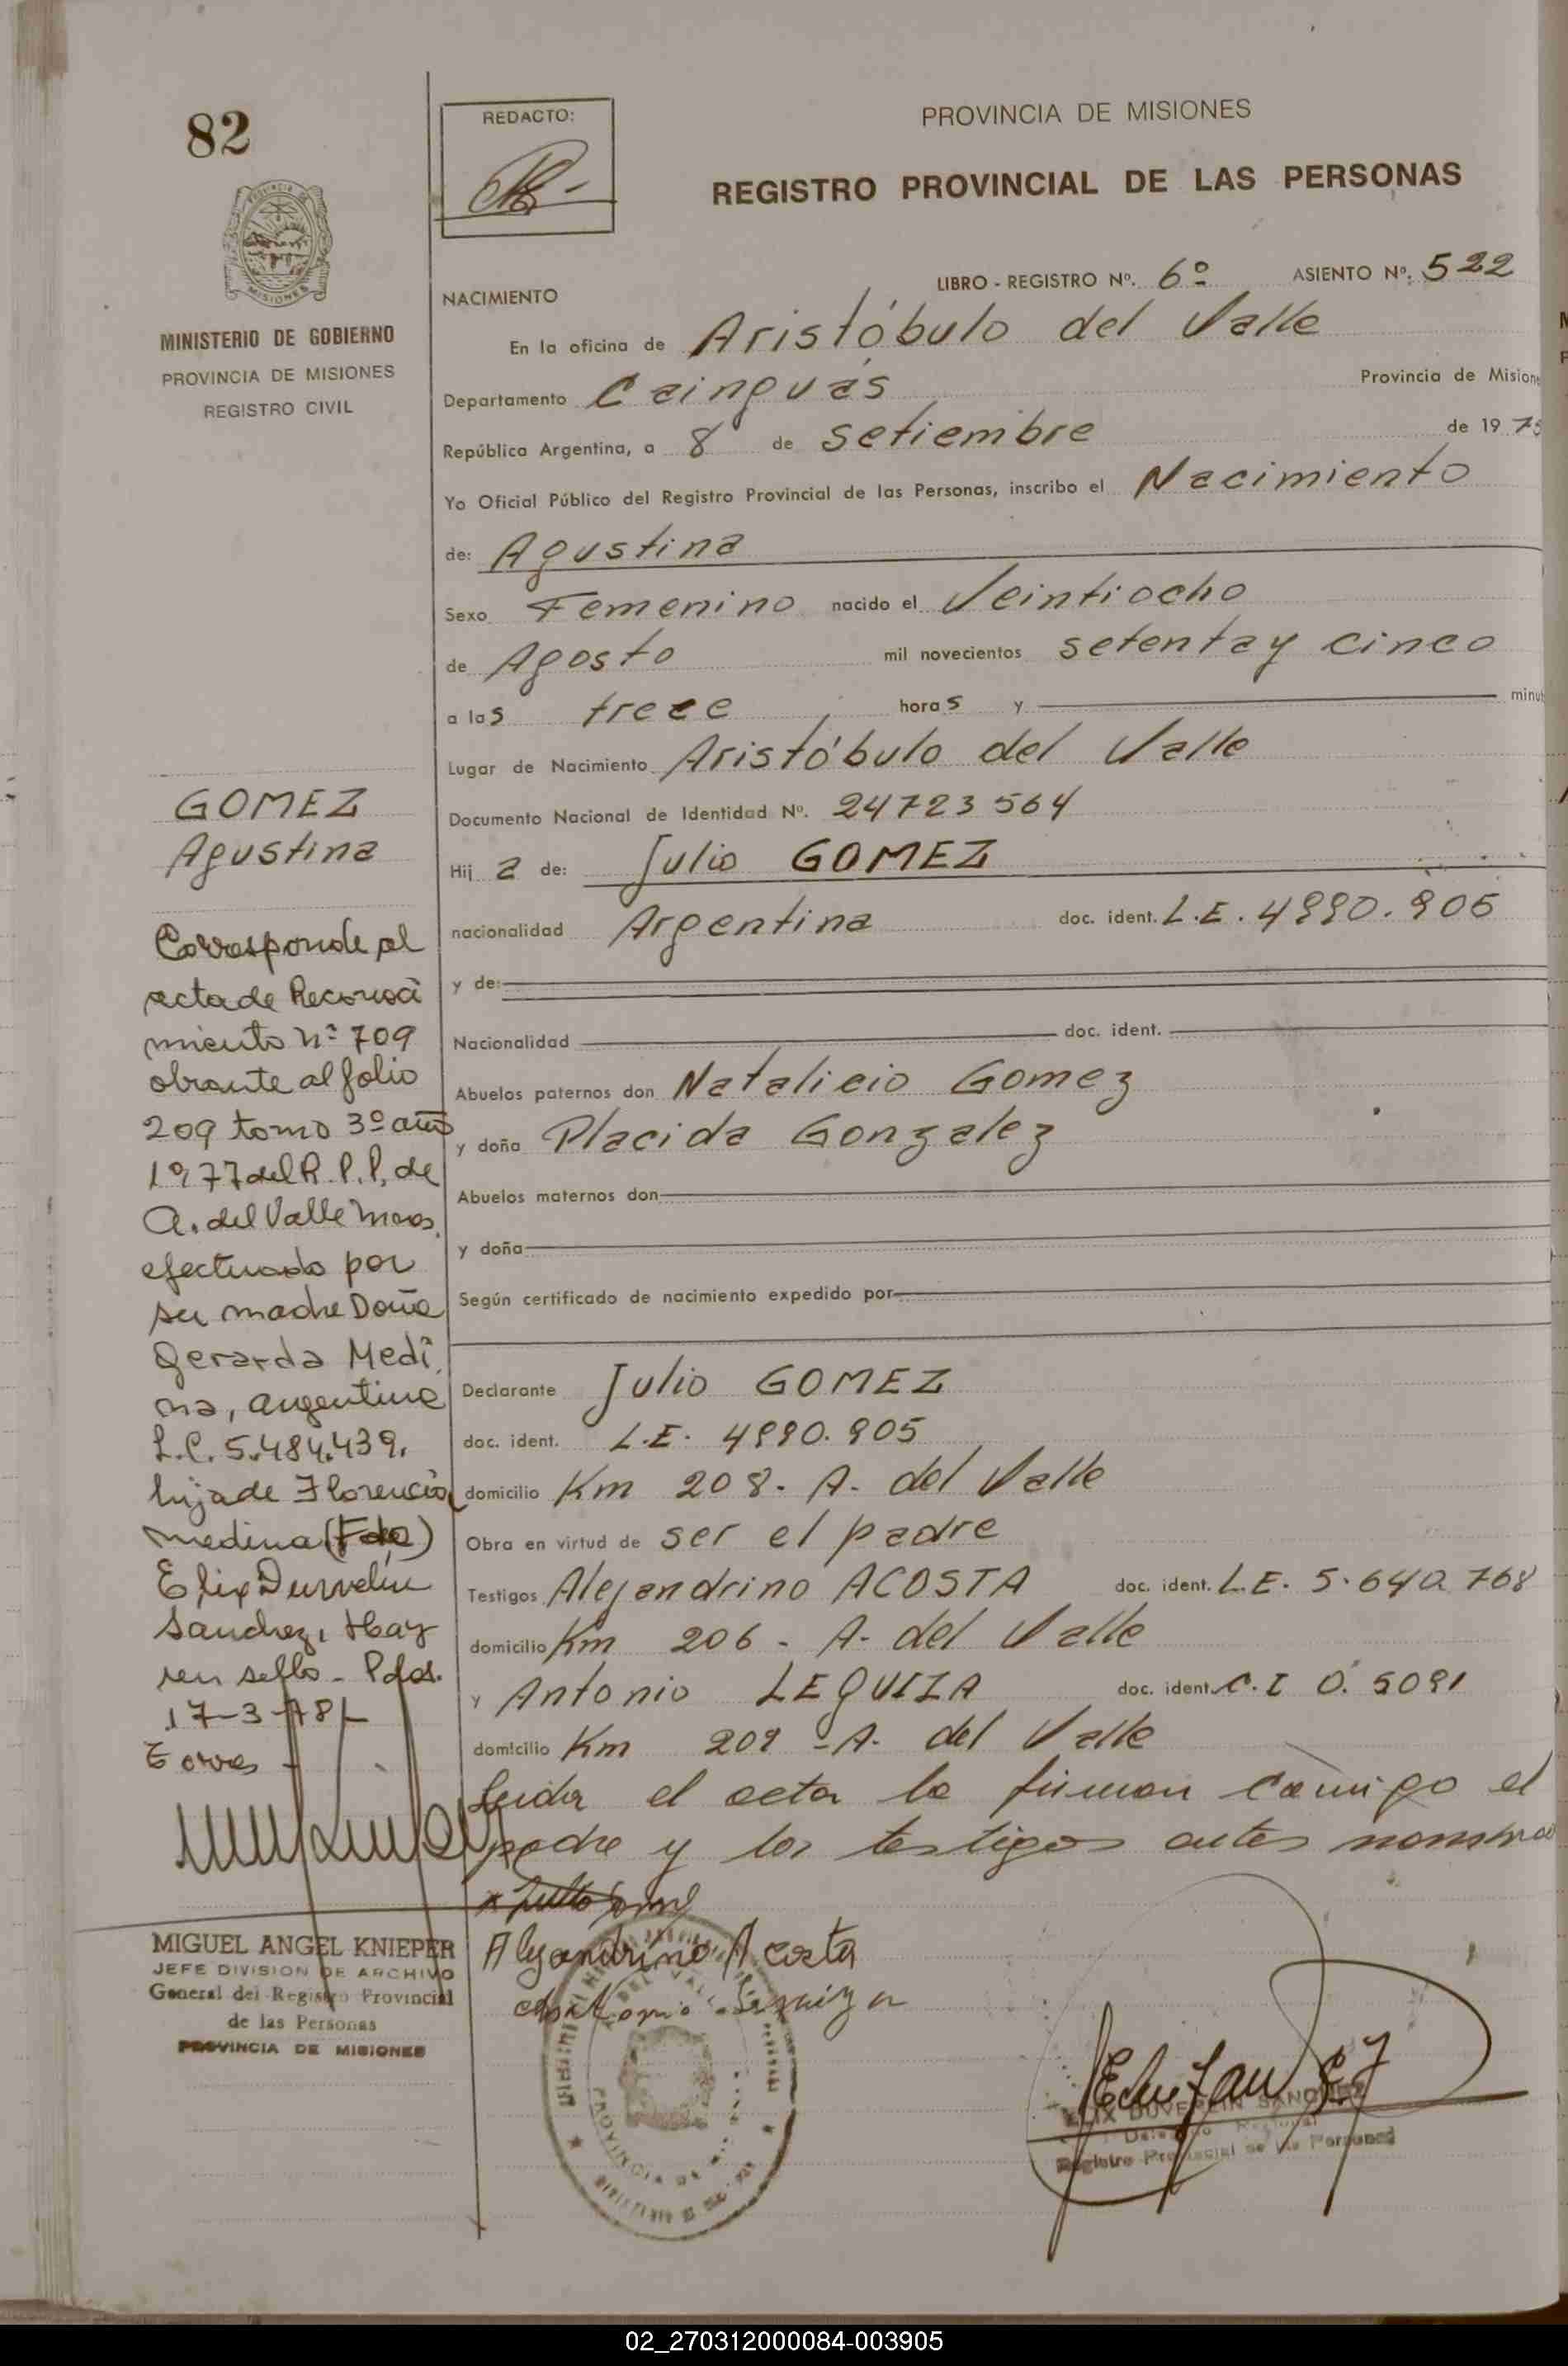 82
REDACTO:
PROVINCIA DE MISIONES
REGISTRO PROVINCIAL DE LAS PERSONAS
MINISTERIO DE GOBIERNO
PROVINCIA DE MISIONES
REGISTRO CIVIL
LIBRO - REGISTRO Nº. 6º ASIENTO Nº. 522
NACIMIENTO
En la oficina de Aristóbulo del Valle
Departamento Cainguás Provincia de Misione
República Argentina, a 8 de setiembre de 1975
Yo Oficial Público del Registro Provincial de las Personas, inscribo el Nacimiento
de: Agustina
Sexo Femenino nacido el Veintiocho
de Agosto mil novecientos setenta y cinco
a las trece horas y minut
Lugar de Nacimiento Aristóbulo del Valle
Documento Nacional de Identidad Nº. 24723564
Hija de: Julio GOMEZ
nacionalidad Argentina doc. ident. L.E. 4990.905
y de:
Nacionalidad doc. ident.
Abuelos paternos don Natalicio Gomez
y doña Placida Gonzalez
Abuelos maternos don
y doña
Según certificado de nacimiento expedido por
Declarante Julio GOMEZ
doc. ident. L.E. 4990.905
domicilio Km 208. A. del Valle
Obra en virtud de ser el padre
Testigos Alejandrino ACOSTA doc. ident. L.E. 5.640.768
domicilio Km 206 - A. del Valle
y Antonio LEQUIZA doc. ident. C.I 0. 5091
domicilio Km 209 - A. del Valle
Leida el acta la firman conmigo el
padre y los testigos antes nombrad
Alejandrino Acosta
Antonio Lequiza
GOMEZ
Agustina
Corresponde al
acta de Reconoci
miento nº 709
obrante al folio
209 tomo 3º año
1977 del R.P.P. de
A. del Valle Mnes.
efectuado por
su madre Doña
Gerarda Medi
na, argentina
L.C. 5.484.439.
hija de Florencia
medina (Fdo)
Elix Duvelin
Sanchez, Hay
un sello - Pdas.
17-3-78
MIGUEL ANGEL KNIEPER
JEFE DIVISION DE ARCHIVO
General del Registro Provincial
de las Personas
PROVINCIA DE MISIONES
ELIX DUVERLIN SANCHEZ
Registro Provincial de las Personas
02_270312000084-003905